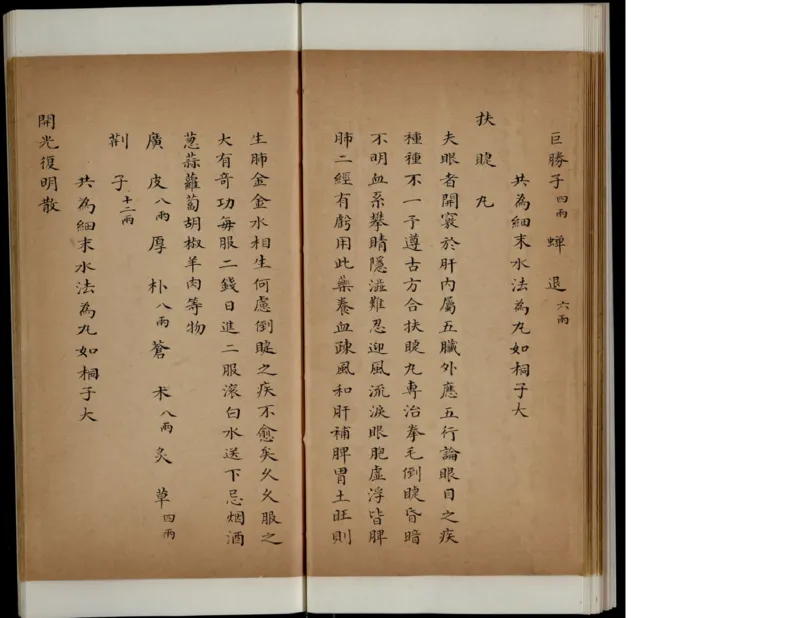 巨勝子四兩 蟬退六兩
共為細末水法為九如桐子大
扶睫九
夫眼者開竅於肝內屬五臟外應五行論眼目之疾
種種不一予遵古方合扶睫九專治拳毛倒睫昏暗
不明血系攀睛隱澁難忍迎風流淚眼胞虛浮皆脾
肺二經有虧用此藥養血疎風和肝補脾胃土旺則
生肺金金水相生何慮倒睫之疾不愈矣久久服之
大有奇功每服二錢日進二服滾白水送下忌烟酒
葱蒜蘿蔔胡椒羊肉等物
廣皮八兩厚朴八兩蒼术八兩炙草四兩
荆子十二兩
共為細末水法為九如桐子大
開光復明散